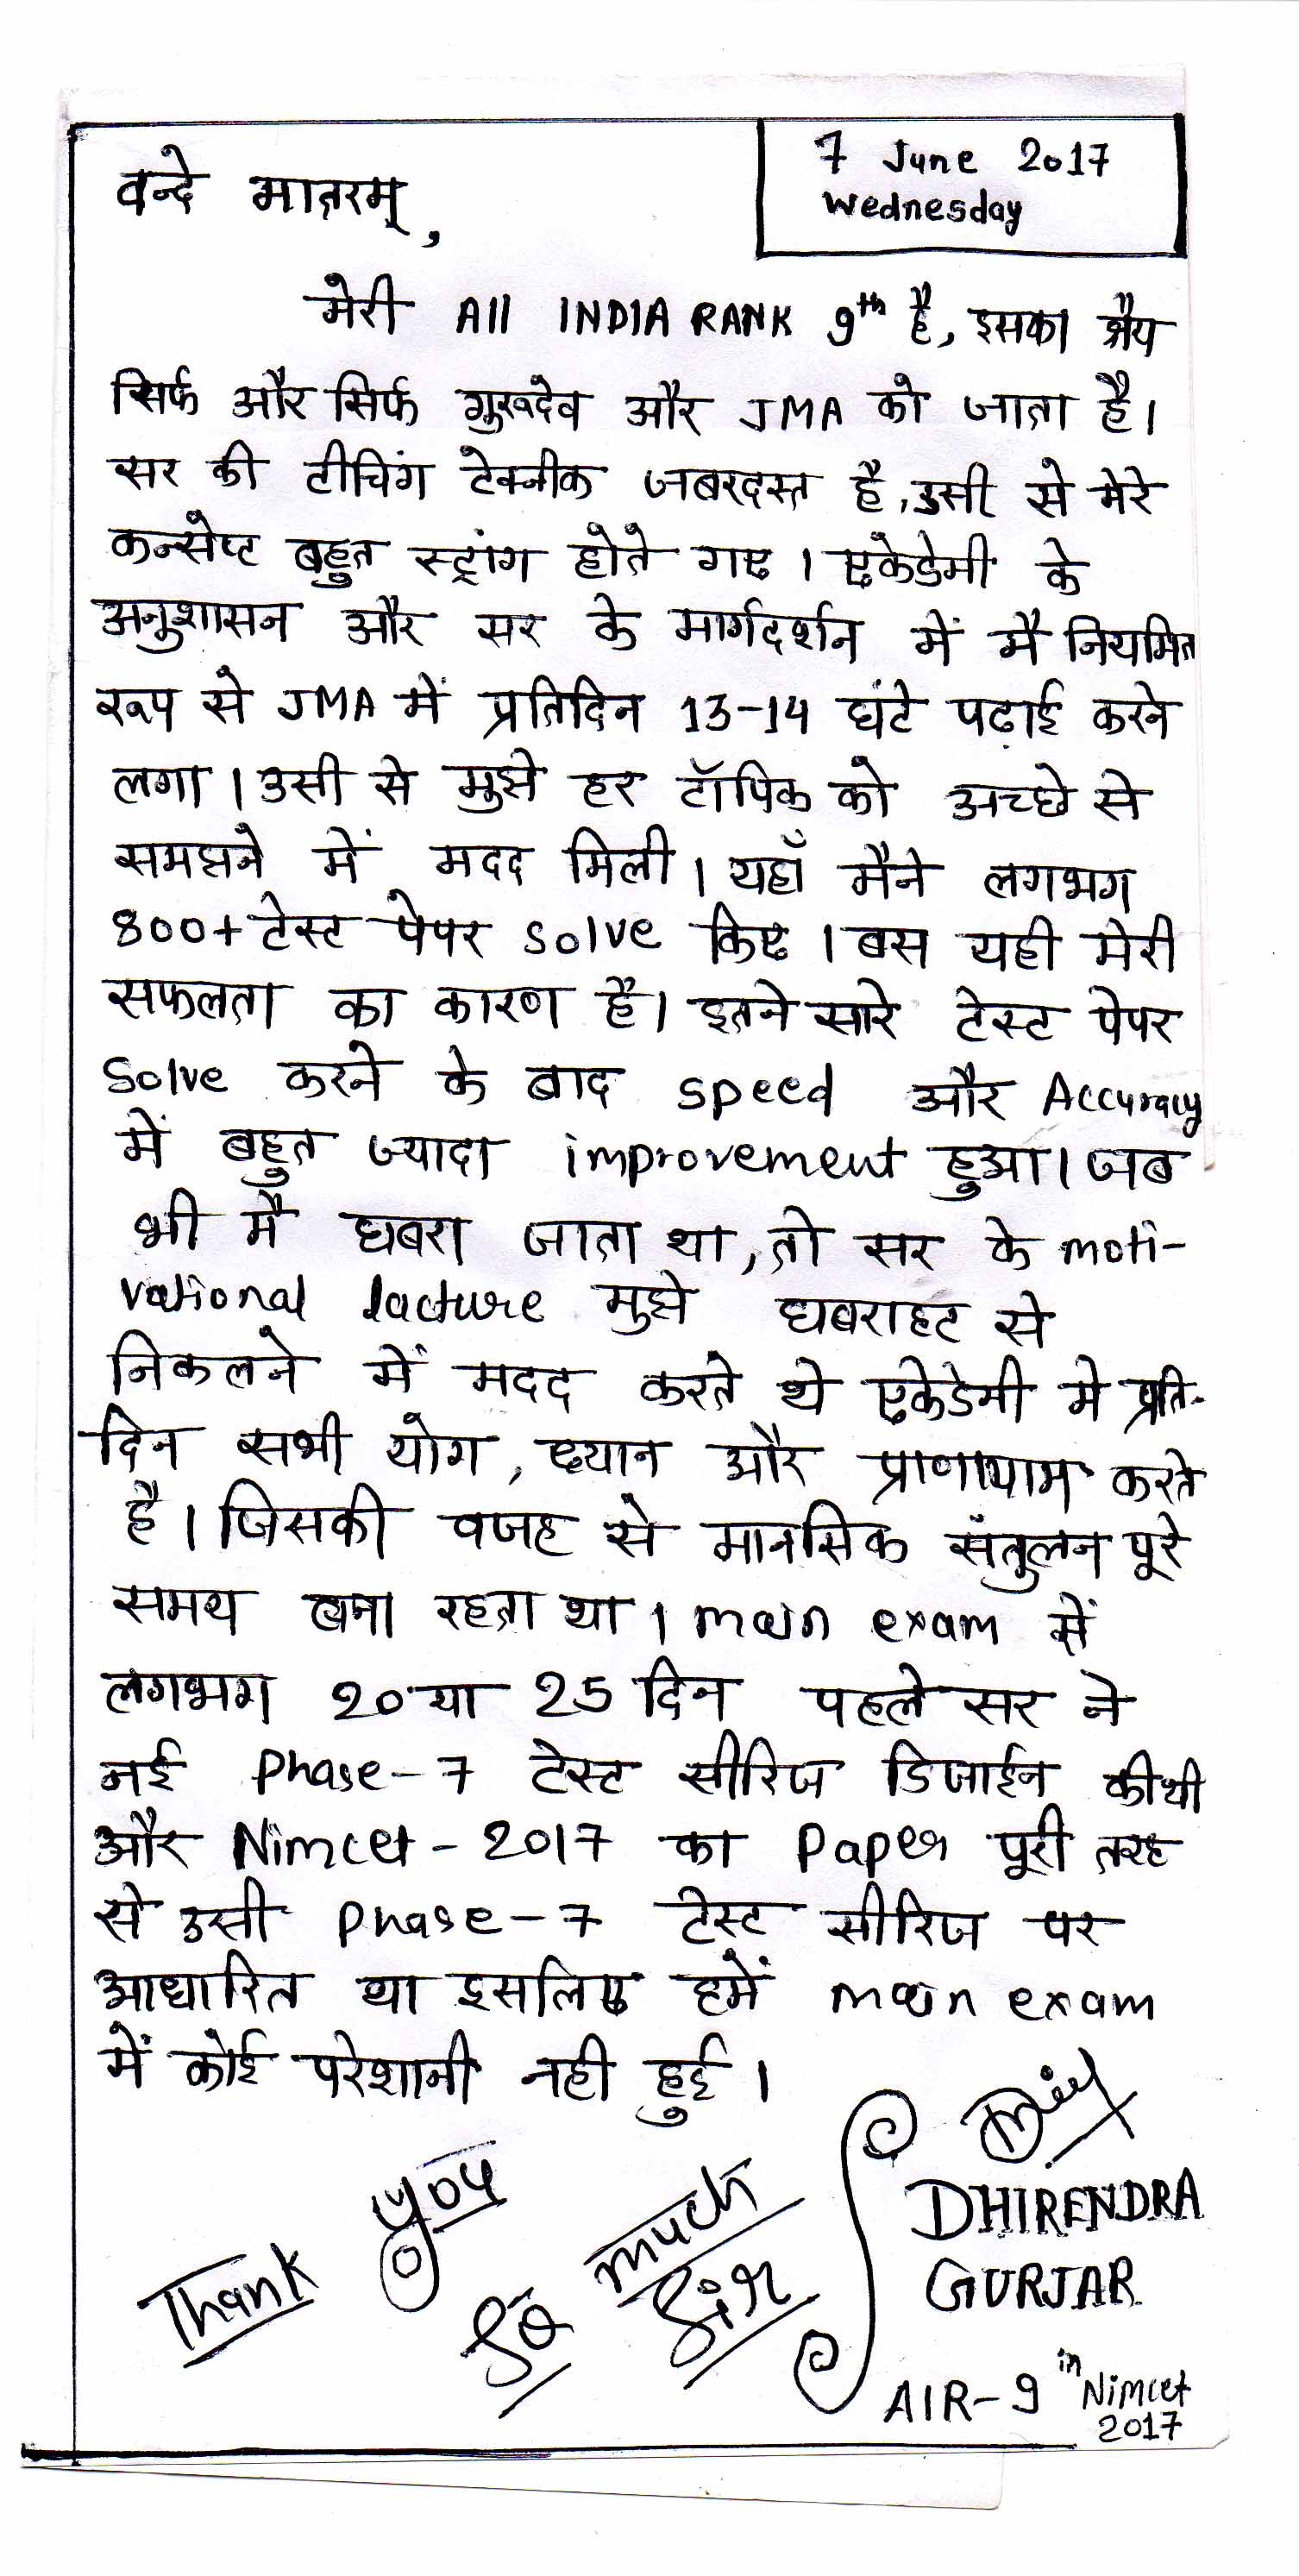 7 June 2017
Wednesday
वन्दे मातरम्,
मेरी All INDIA RANK 9th है, इसका श्रैय
सिर्फ और सिर्फ गुरूदेव और JMA को जाता है।
सर की टीचिंग टेक्नीक जबरदस्त है, उसी से मेरे
कन्सेप्ट बहुत स्ट्रांग होते गए। एकेडेमी के
अनुशासन और सर के मार्गदर्शन में मै नियमित
रूप से JMA में प्रतिदिन 13-14 घंटे पढाई करने
लगा। उसी से मुझे हर टॉपिक को अच्छे से
समझने में मदद मिली। यहाँ मैने लगभग
800+ टेस्ट पेपर solve किए। बस यही मेरी
सफलता का कारण है। इतने सारे टेस्ट पेपर
Solve करने के बाद speed और Accuracy
में बहुत ज्यादा improvement हुआ। जब
भी मै घबरा जाता था, तो सर के moti-
vational lacture मुझे घबराहट से
निकलने में मदद करते थे एकेडेमी मे प्रति-
दिन सभी योग, ध्यान और प्राणायाम करते
है। जिसकी वजह से मानसिक संतुलन पूरे
समय बना रहता था। main exam में
लगभग 20 या 25 दिन पहले सर ने
नई Phase-7 टेस्ट सीरिज डिजाईन की थी
और Nimcet-2017 का Paper पूरी तरह
से उसी Phase-7 टेस्ट सीरिज पर
आधारित था इसलिए हमें main exam
में कोई परेशानी नही हुई।
Thank you so much Sir
DHIRENDRA
GURJAR
AIR-9 in Nimcet
2017